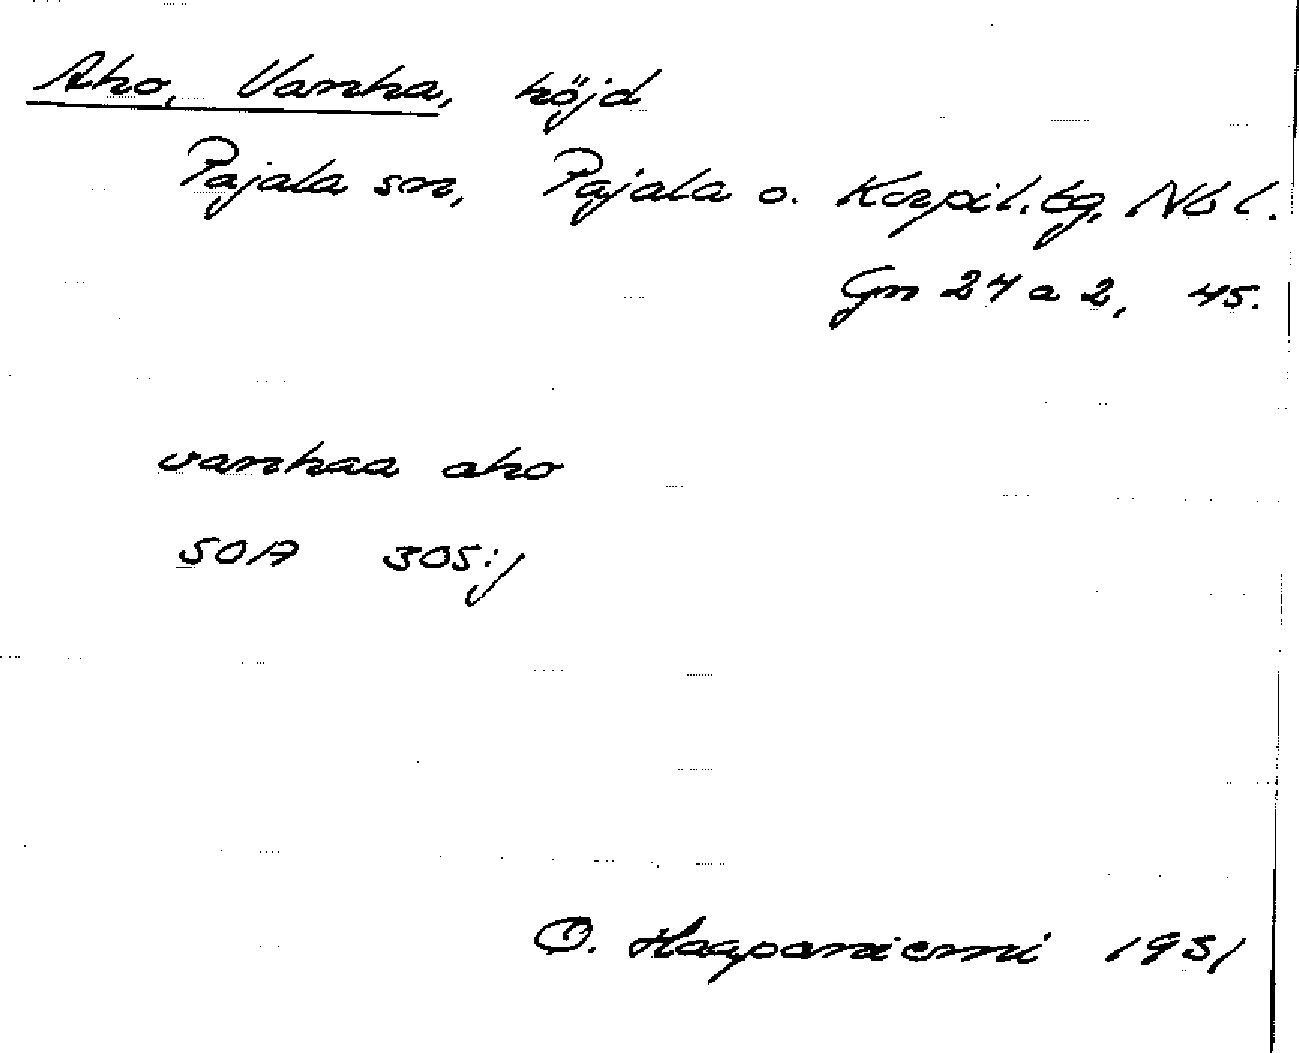 Aho, Vanha, höjd
Pajala sn, Pajala o. Korpil. tg, Nb l.
Gn 24 a 2, 45.
vanhaa aho
SOA 305:j
O. Haapaniemi 1951